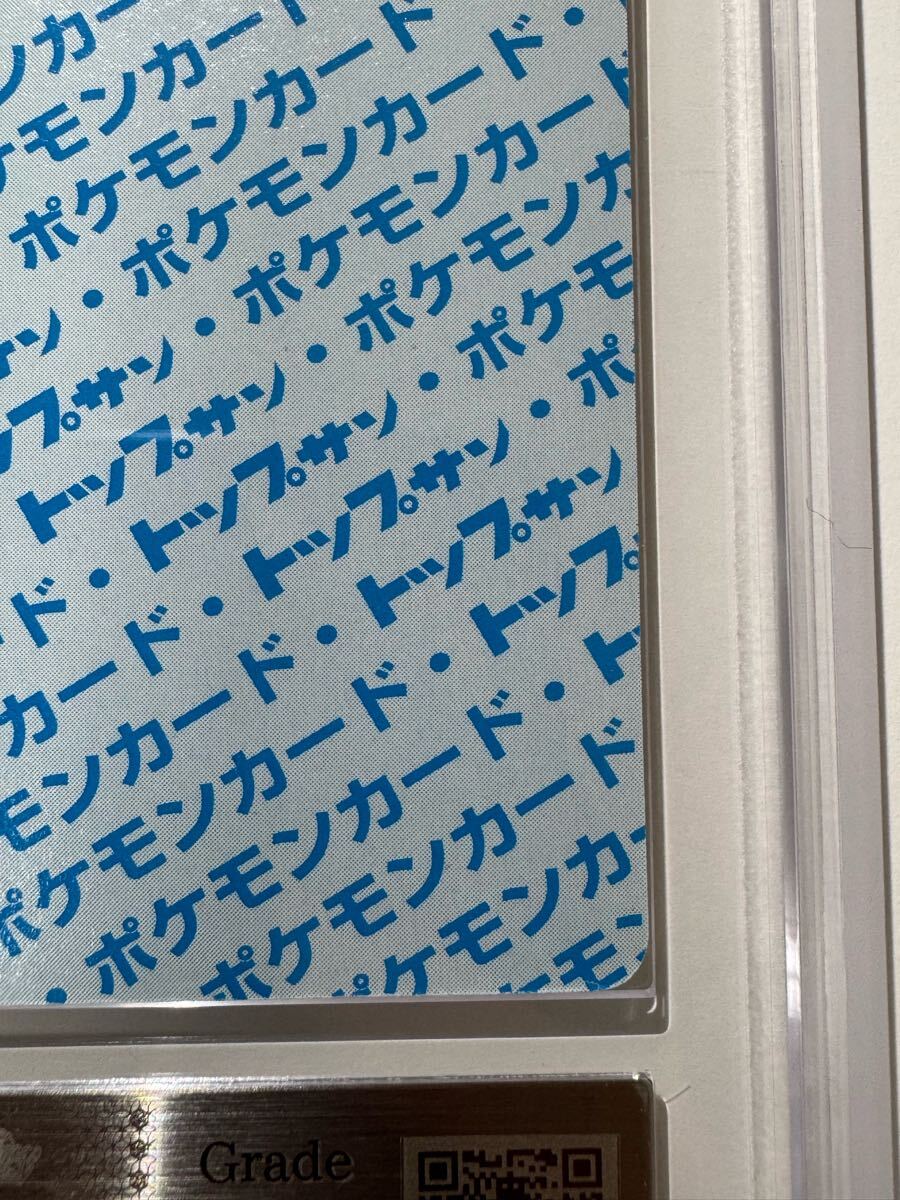 ンカー
ケモンカード
ポケモンカード
・ポケモンカード・
トップサン・ポケモンカード
トップサン・ポケモンカ
トップサン・ポケモンカ
ド・トップサン・ポケモ
カード・トップサン・ポ
モンカード・トップサン
ポケモンカード・トップ
・ポケモンカード・ト
ポケモンカード
ポケモンカー
ケモ
Grade